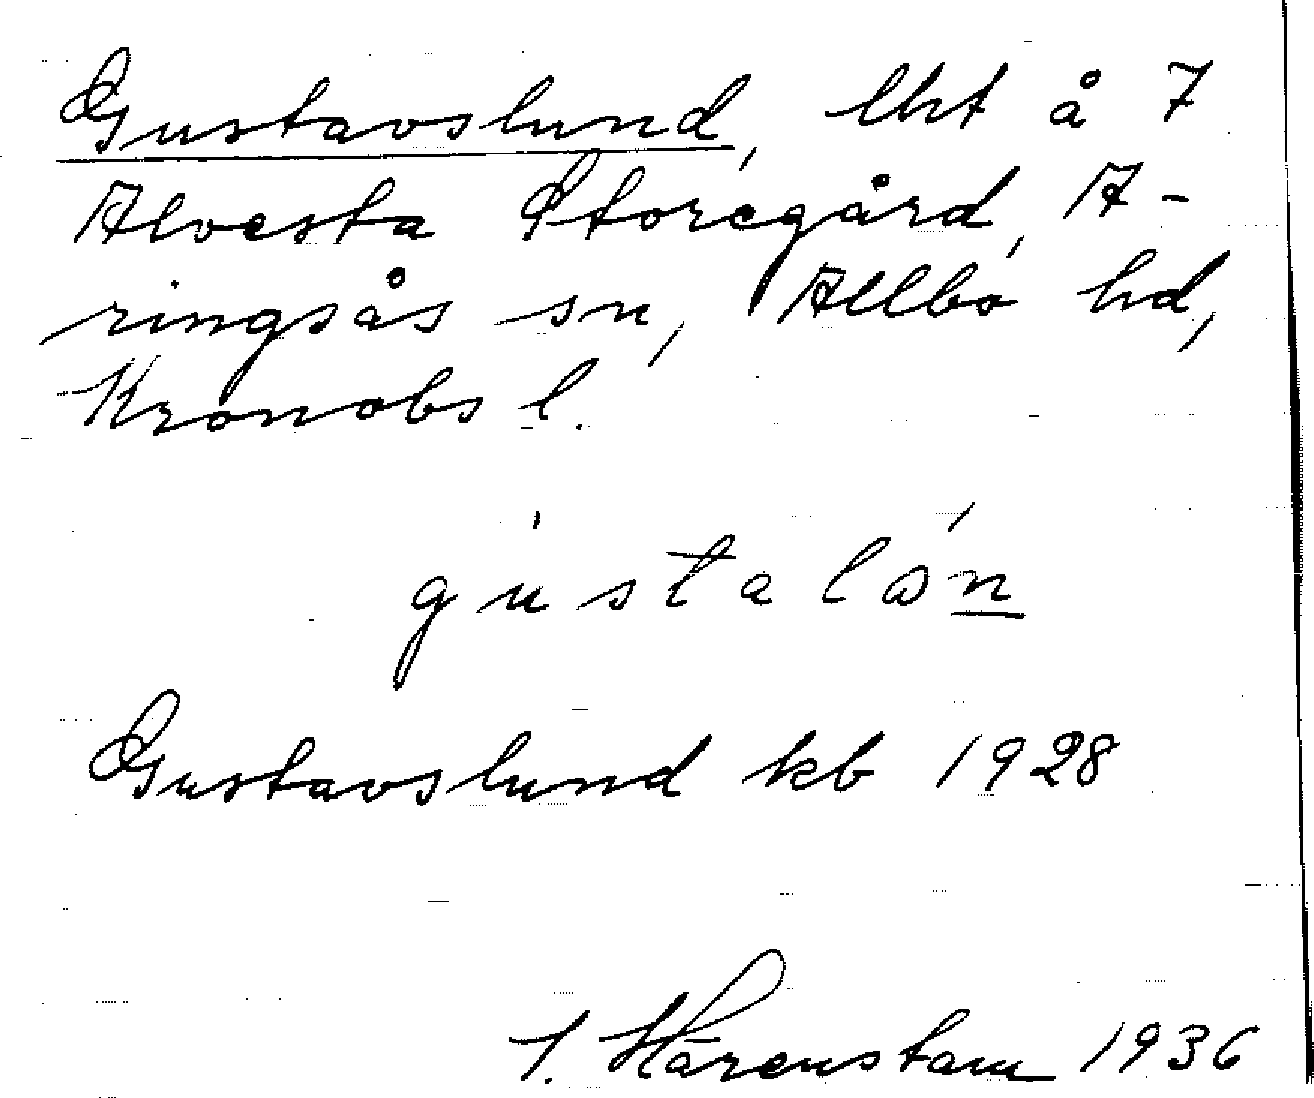 Gustavslund, lht å 7
Alvesta Storegård, A-
ringsås sn, Allbo hd,
Kronobs l.
gustalɷn
Gustavslund kb 1928
I. Härenstam 1936